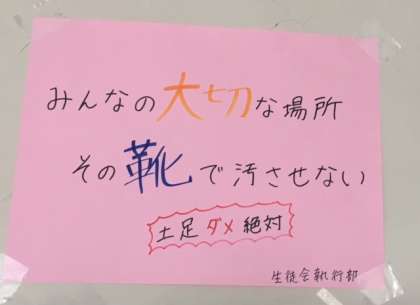 みんなの大切な場所
その靴で汚させない
土足ダメ絶対
生徒会執行部